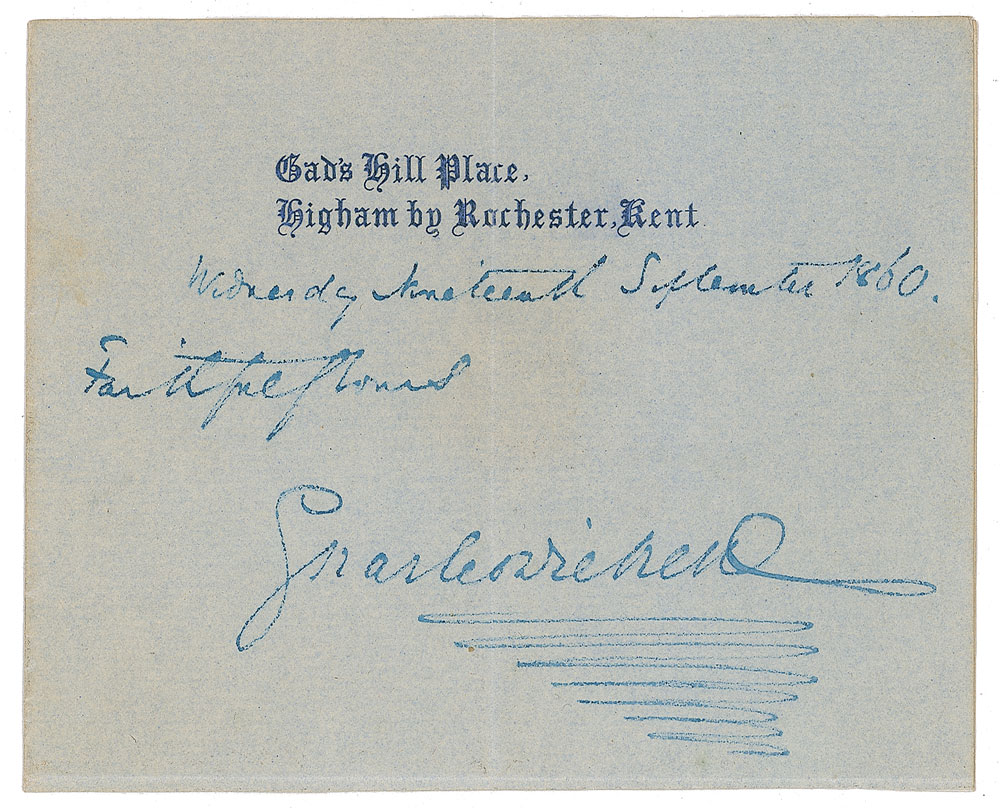 Gad's Hill Place,
Higham by Rochester, Kent
Wednesday Nineteenth September 1860.
Faithfully Yours
Charles Dickens